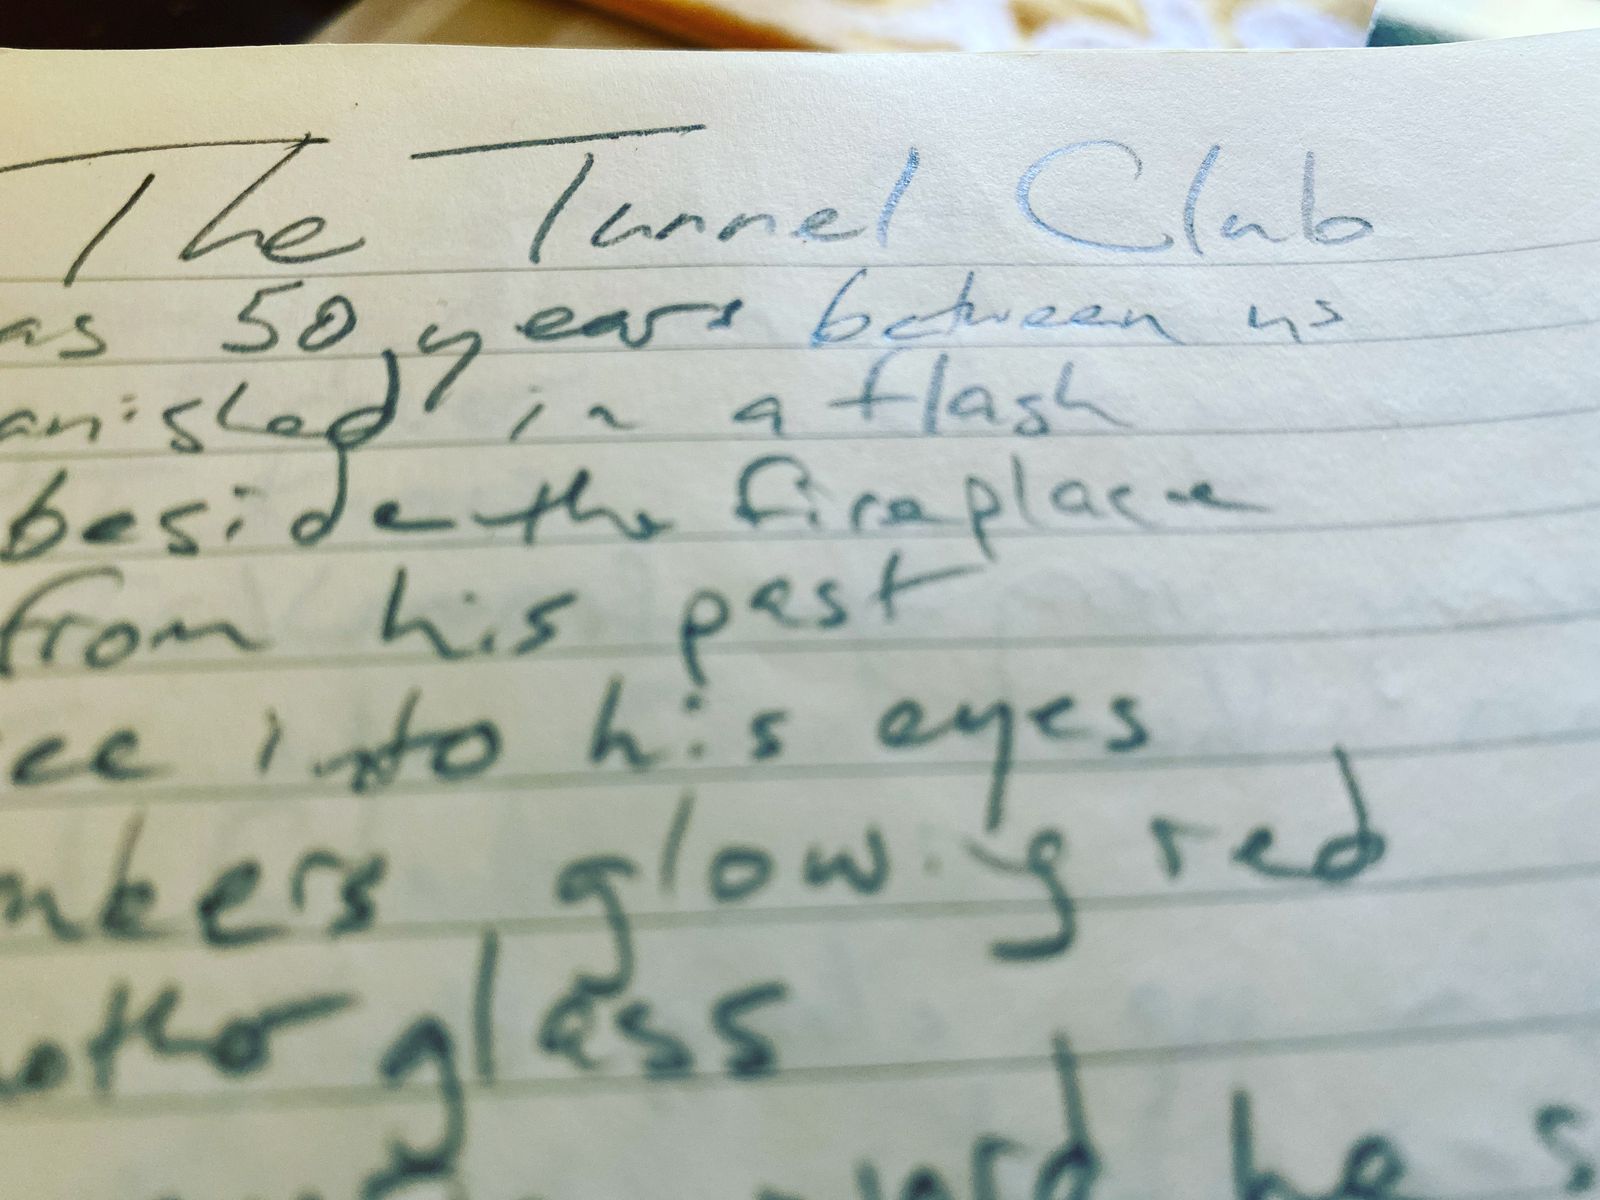 The Tunnel Club
as 50 years between us
anished in a flash
beside the fireplace
from his past
ee into his eyes
mbers glowing red
nother glass
he s